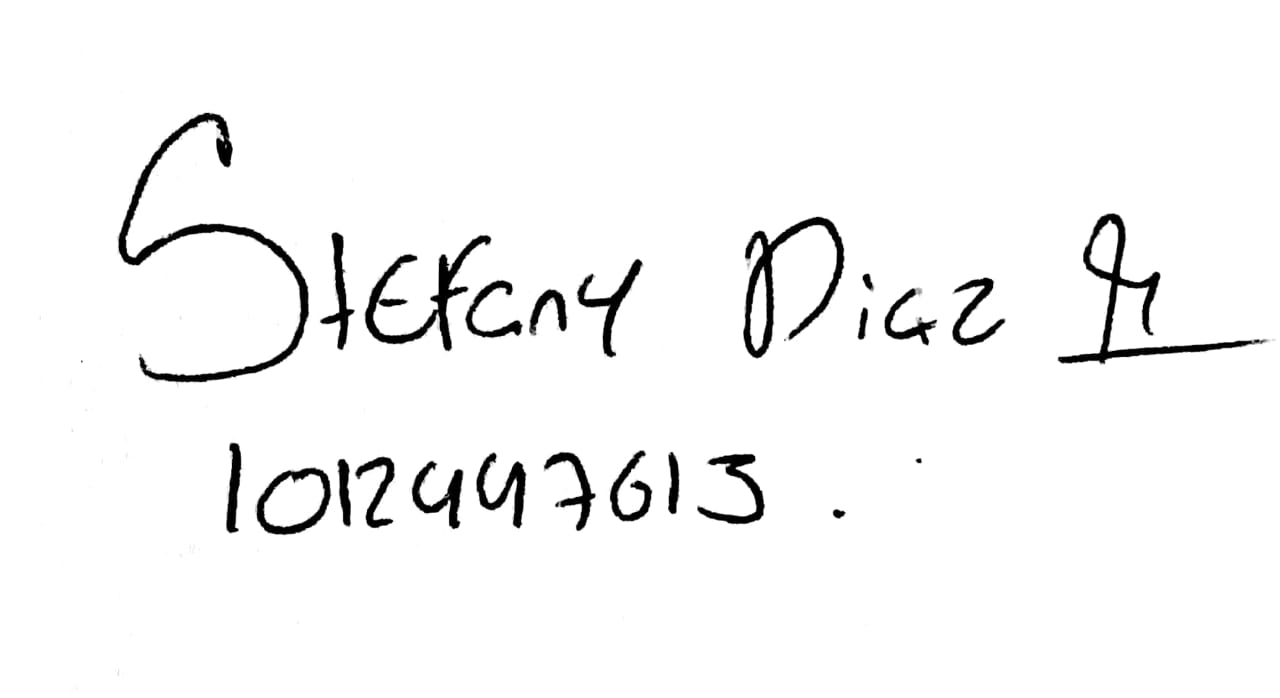 Stefany Diaz R
1012447613.